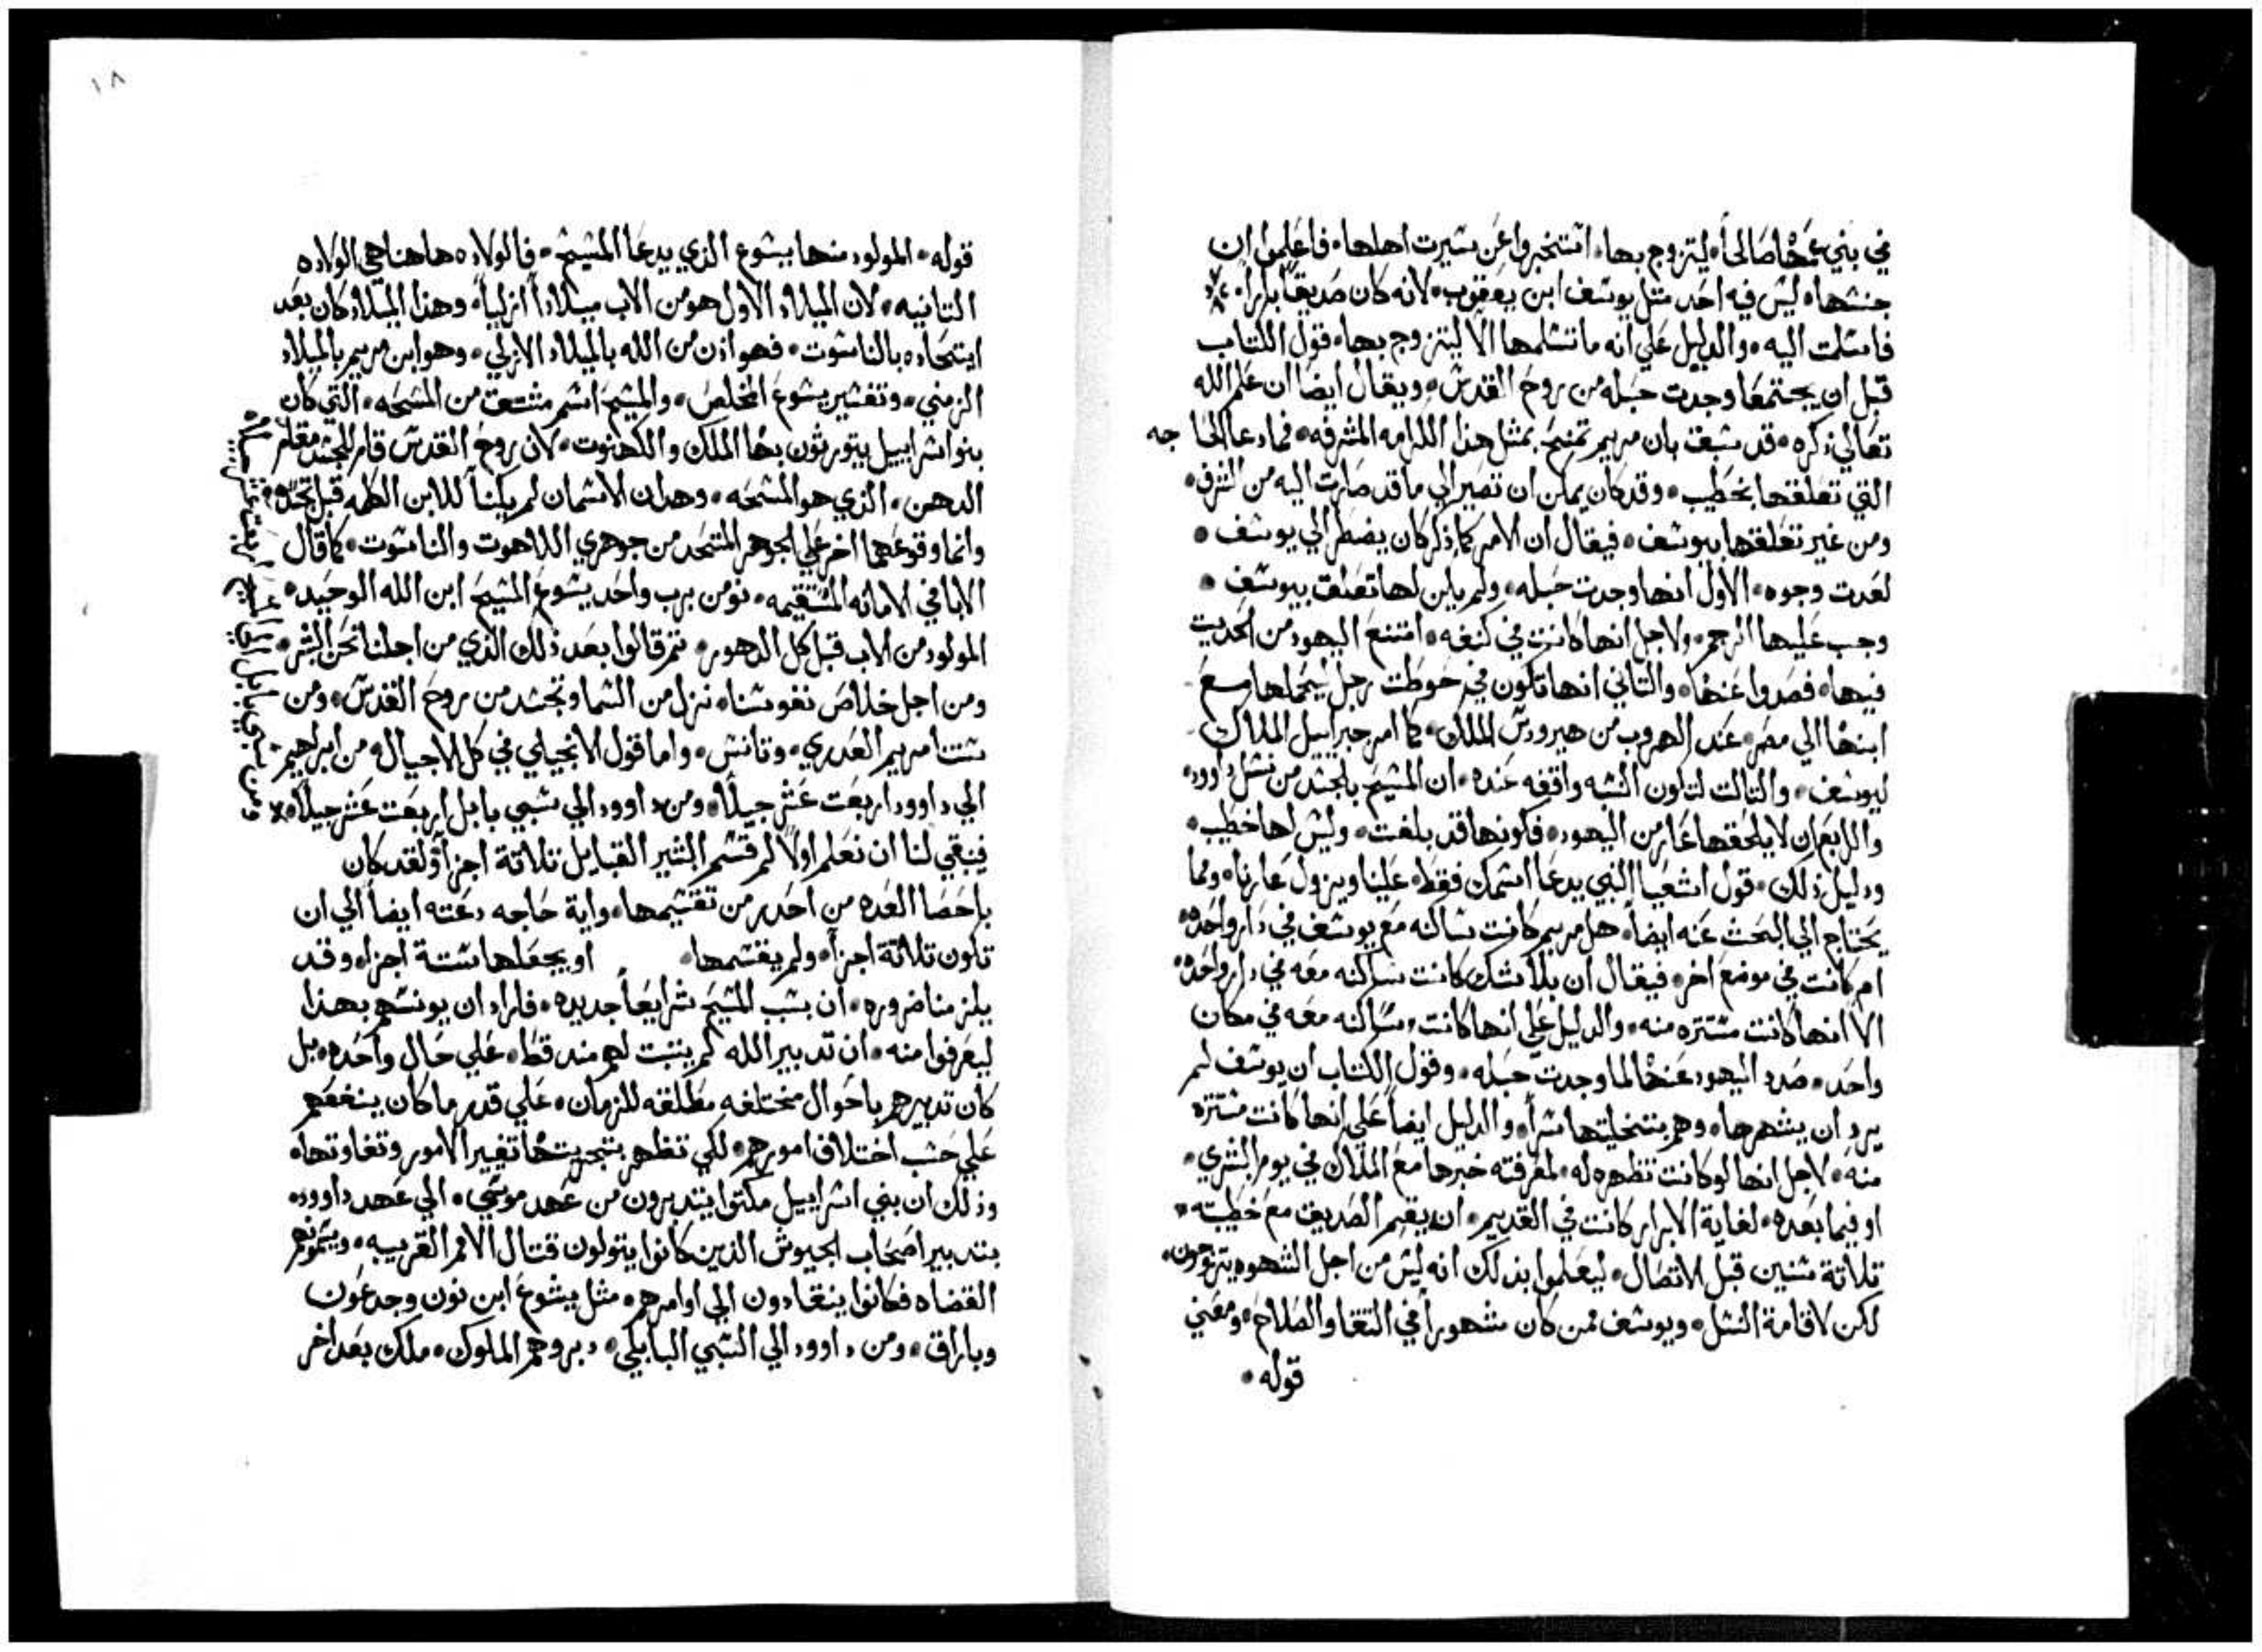 في بني عمها صالحاً ليتزوج بها، استخبروا عن سيرت اهلها، فاعلموا ان
جنسها ليس فيه احد مثل يوسف ابن يعقوب، لانه كان صديقاً باراً،
فاسلمت اليه، والدليل علي انه ما تسلمها الا ليتزوج بها، قول الكتاب
قبل ان يجتمعا وجدت حبله من روح القدس، ويقال ايضا ان علم الله
تعالي ذكره، قد سبق بان مريم تمنح بمثل هذا الكرامه المشرفه، فما دعا الحاجه
التي تعلقها بخطيب، وقد كان يمكن ان تصير الي ما قد صارت اليه من الشرف،
ومن غير تعلقها بيوسف، فيقال ان الامر كما ذكر كان يضطر الي يوسف،
لعدت وجوه، الاول انها وجدت حبله، ولم يكن لها تعلق بيوسف،
وجب عليها الرجم، ولاجل انها كانت في كنفه، امتنع اليهود من الحديت
فيها، فصدوا عنها، والتاني انها تكون في حوطت رجل يحملها مع
ابنها الي مصر، عند الهروب من هيرودس الملك، كما امر جبراييل الملاك
ليوسف، والتالت لتكون النسبه واقفه عنده، ان المسيح يتجسد من نسل داوود،
والرابع ان لا يلحقها عار من اليهود، فكونها قد بلغت، وليس لها خطيب،
ودليل ذلك، قول اشعيا النبي يدعا اسمك فقط، علينا ويزول عارنا، ومما
يحتاج الي البحث عنه ايضاً، هل مريم كانت ساكنه مع يوسف في دار واحده،
ام كانت في موضع اخر، فيقال ان بلا شك كانت ساكنه معه في دار واحده،
الا انها كانت مستتره منه، والدليل علي انها كانت ساكنه معه في مكان
واحد، صدد اليهود عنها لما وجدت حبله، وقول الكتاب ان يوسف لم
يرد ان يشهرها، وهم بتخليتها سراً، والدليل ايضاً علي انها كانت مستتره
منه، لاجل انها لو كانت تظهره له، لمعرفته خبرها مع الملاك في يوم البشري،
او فيما بعده، لغاية الابرار كانت في القديم، ان يقيم الصديق مع خطيبته،
تلاتة سنين قبل الاتصال، ليعلموا بذلك انه ليس من اجل الشهوه يتزوجون،
لكن لاقامة النسل، ويوسف فمن كان مشهوراً في التقا والصلاح، ومعني
قوله،
١٨
قوله، المولود منها يسوع الذي يدعا المسيح، فالولاده هاهنا هي الولاده
التانيه، لان الميلاد الاول هو من الاب ميلاداً ازلياً، وهذا الميلاد كان بعد
ايتحاده بالناسوت، فهو اذن من الله بالميلاد الازلي، وهو ابن مريم بالميلاد
الزمني، وتفسير يسوع المخلص، والمسيح اسم مشتق من المسحه، التي كان
بنو اسراييل يتورثون بها الملك والكهنوت، لان روح القدس قام للجسد مقام
الدهن، الذي هو المسحه، وهدان الاسمان لم يكنا للابن الكلمه قبل تجسده،
وانما وقوعهما اخر علي الجوهر المتحد من جوهري اللاهوت والناسوت، كما قال
الابا في الامانه المستقيمه، نومن برب واحد يسوع المسيح ابن الله الوحيد،
المولود من الاب قبل كل الدهور، تم قالوا بعد ذلك الذي من اجلنا نحن البشر،
ومن اجل خلاص نفوسنا، نزل من السما وتجسد من روح القدس، ومن
ستنا مريم العدري، وتانس، واما قول الانجيلي في كل الاجيال، من ابراهيم
الي داوود اربعت عشر جيلاً، ومن داوود الي سبي بابل اربعت عشر جيلاً،
ومن سبي بابل الي المسيح اربعت عشر جيلاً،
فينبغي لنا ان نعلم اولاً لم قسم البشير القبايل تلاتة اجزاً، ولقد كان
باحصا العده من احدر من تقسيمها، واية حاجه دعته ايضاً الي ان
تكون تلاتة اجزا، ولم يقسمها، او يجعلها ستة اجزا، وقد
يلزمنا ضروره، ان بسبب المسيح شرايعاً جديده، فاراد ان يونسهم بهذا
ليعرفوا منه، ان تدبير الله لم يتبت لهم مند قط، علي حال واحده، بل
كان تدبيرهم باحوال مختلفه مطلقه للزمان، علي قدر ما كان ينفعهم
علي حسب اختلاف امورهم، لكي تظهر بتجربتها تغيير الامور وتفاوتها،
وذلك ان بني اسراييل مكتوا يتدبرون من عهد موسي، الي عهد داوود،
بتدبير اصحاب الجيوش الذين كانوا يتولون قتال الامم القريبه، ويسمونهم
القضاه فكانوا ينقادون الي اوامرهم، مثل يشوع ابن نون وجدعون
وباراق، ومن داوود الي السبي البابلي، دبروهم الملوك، ملك بعد اخر